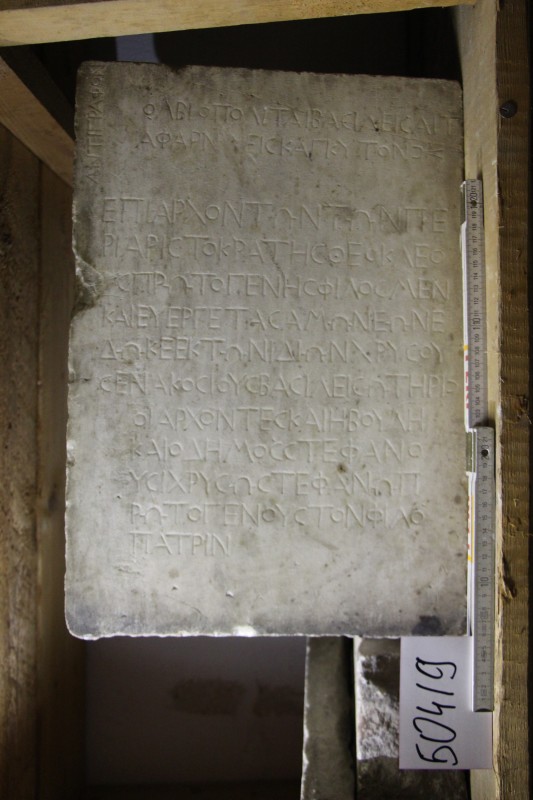 ΑΝΤΙΓΡΑΦΟΝ
ΟΛΒΙΟΠΟΛΙΤΑΙΒΑϹΙΛΕΙϹΑΙΤ
ΕΠΙΑΡΧΟΝΤωΝΤωΝΠΕ
ΡΙΑΡΙϹΤΟΚΡΑΤΗϹΘΕΟΚΛΕΟ
ΥϹΠΡωΤΟΓΕΝΗϹΦΙΛΟϹΜΕΝ
ΚΑΙΕΥΕΡΓΕΤΑϹΑΜωΝΕωΝΕ
ΔωΚΕΕΚΤωΝΙΔΙωΝΧΡΥϹΟΥ
ϹΕΝΑΚΟϹΙΟΥϹΒΑϹΙΛΕΙϹωΤΗΡΙΟ
ΟΙΑΡΧΟΝΤΕϹΚΑΙΗΒΟΥΛΗΙ
ΚΑΙΟΔΗΜΟϹϹΤΕΦΑΝΟ
ΥϹΙΧΡΥϹωϹΤΕΦΑΝωΠ
ΡωΤΟΓΕΝΟΥϹΤΟΝΦΙΛΟ
ΠΑΤΡΙΝ
50419